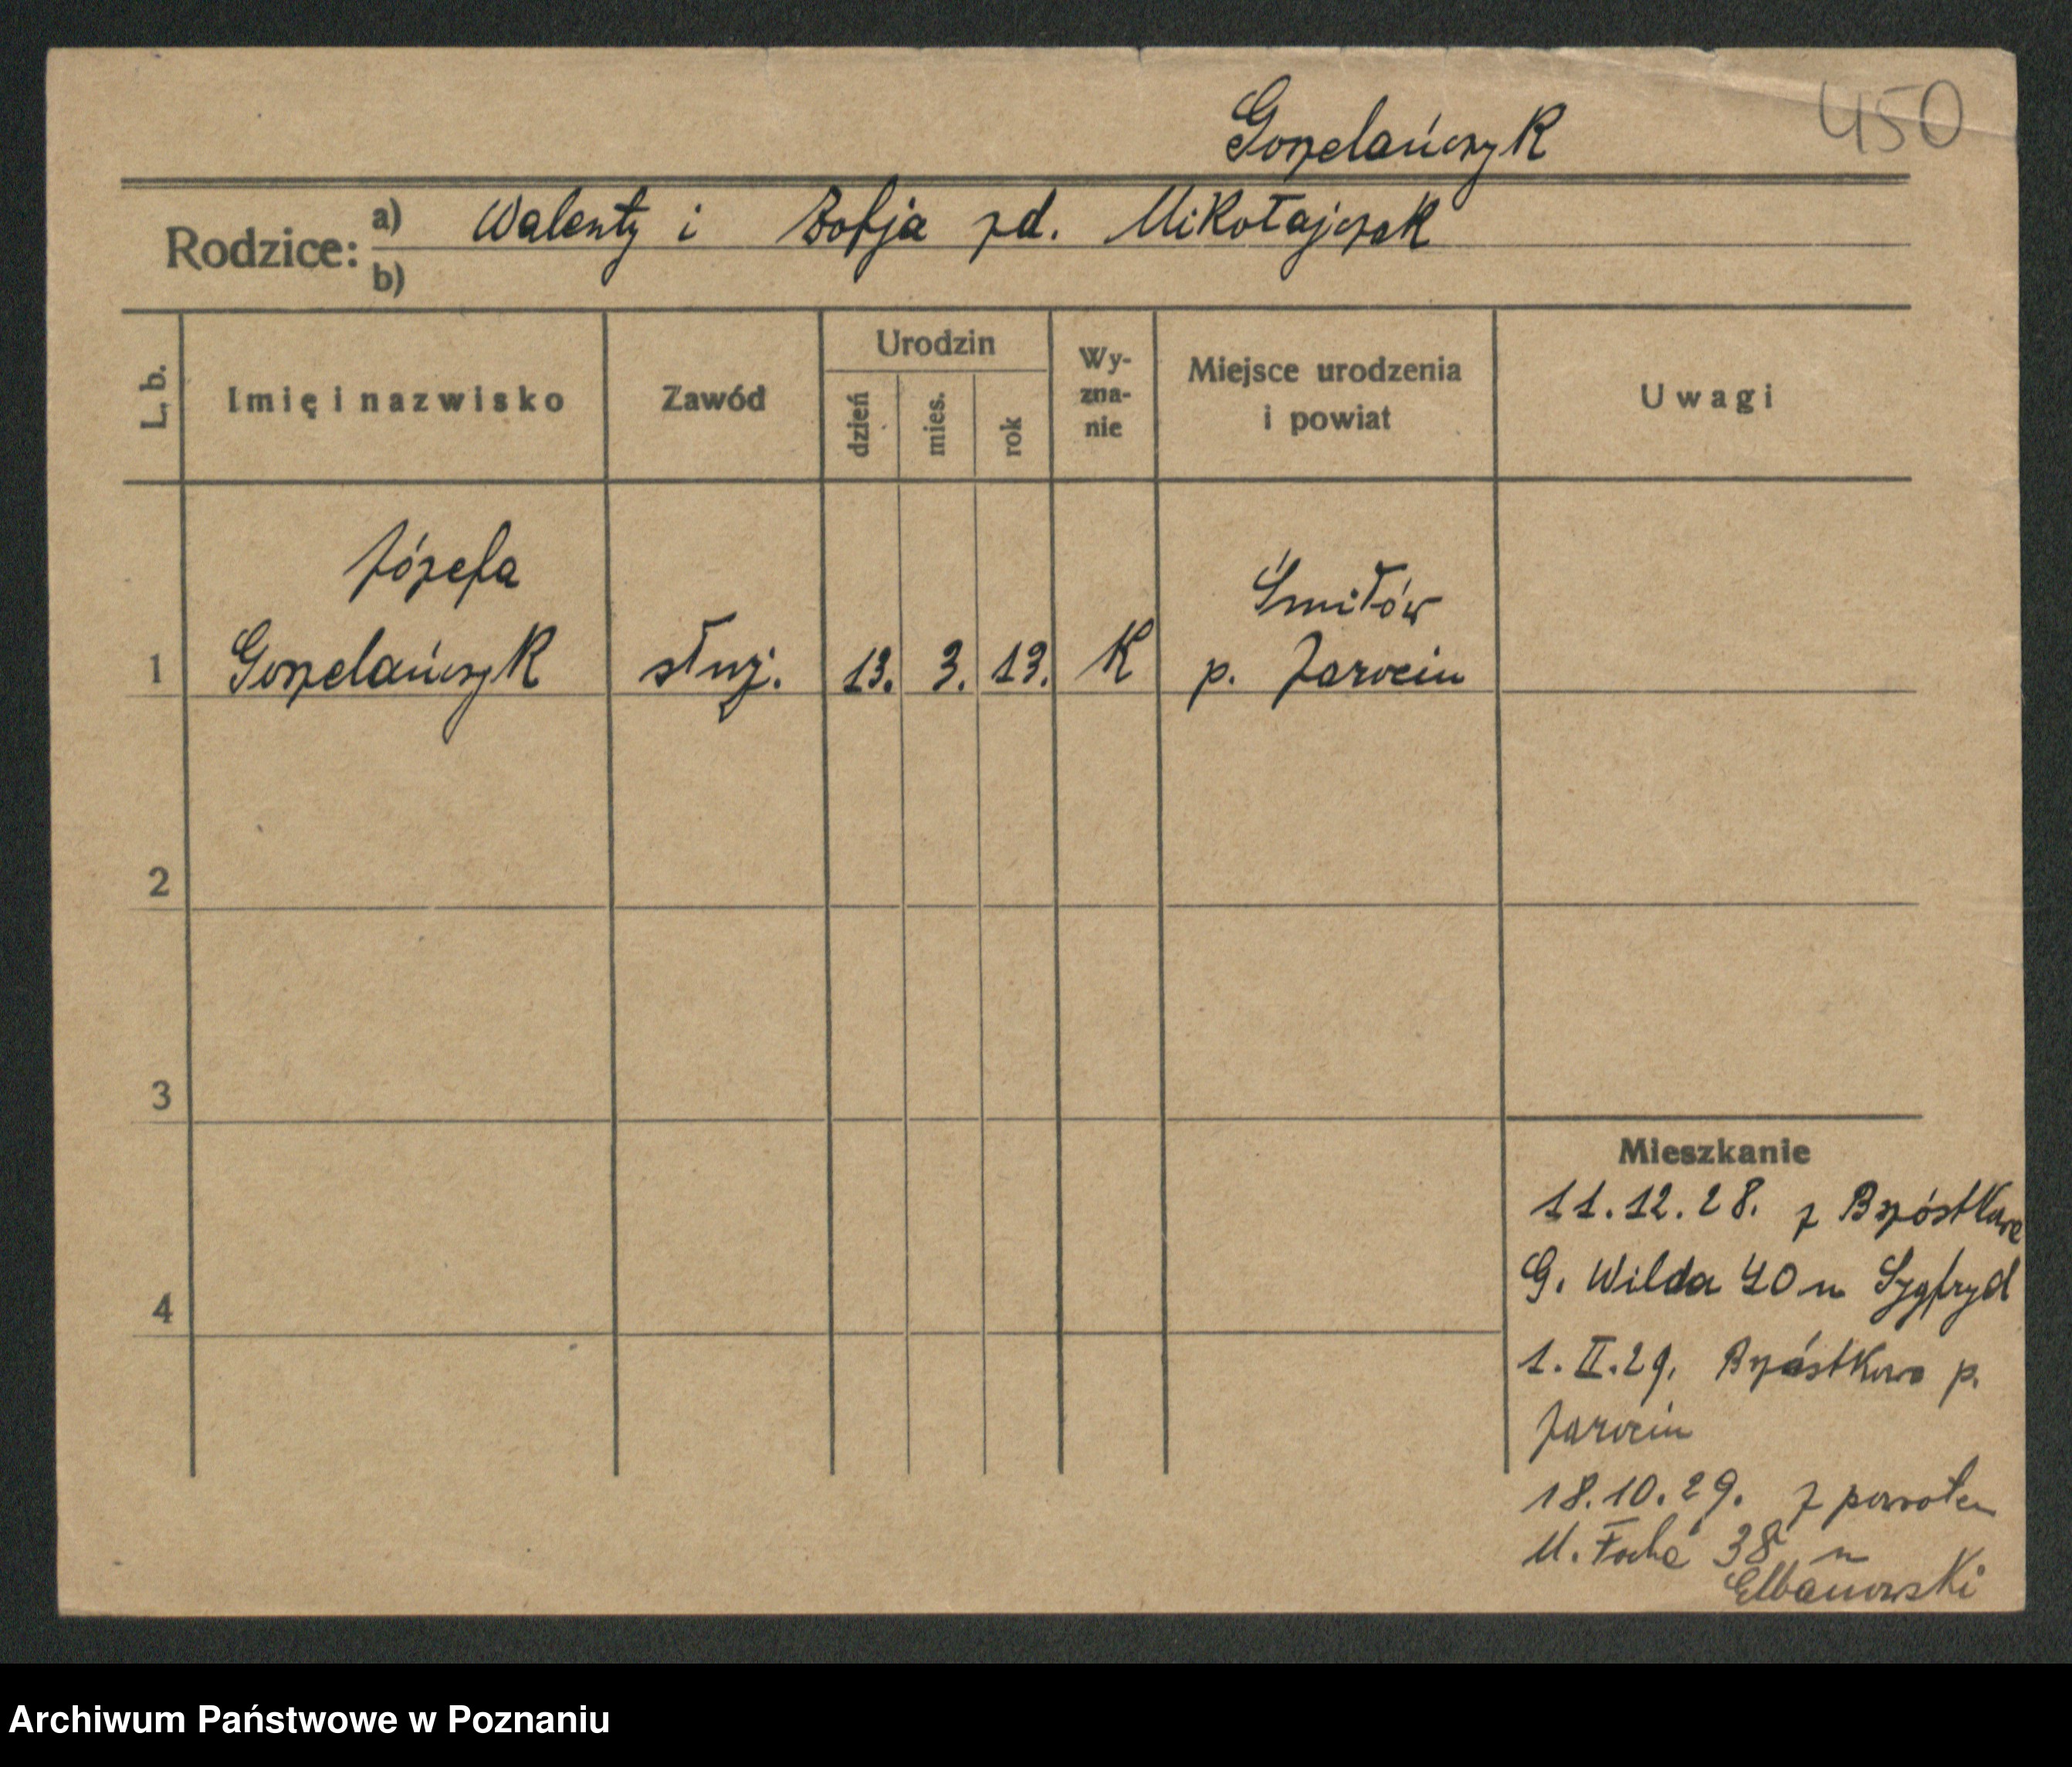 450
Gorzelańczyk
Rodzice: a) Walenty i Zofja zd. Mikołajczak
b)
L. b.
Imię i nazwisko
Zawód
Urodzin
dzień
mies.
rok
Wy-
zna-
nie
Miejsce urodzenia
i powiat
Uwagi
Józefa
Śmiłów
1 Gorzelańczyk służ. 13. 3. 13. K p. Jarocin
2
3
4
Mieszkanie
11.12.28. z Brzóstkowa
G. Wilda 40 u Sygfryd
1.II.29. Brzóstkowo p.
Jarocin
18.10.29. z powrotem
M. Focha 38 u
Elbanowski
Archiwum Państwowe w Poznaniu